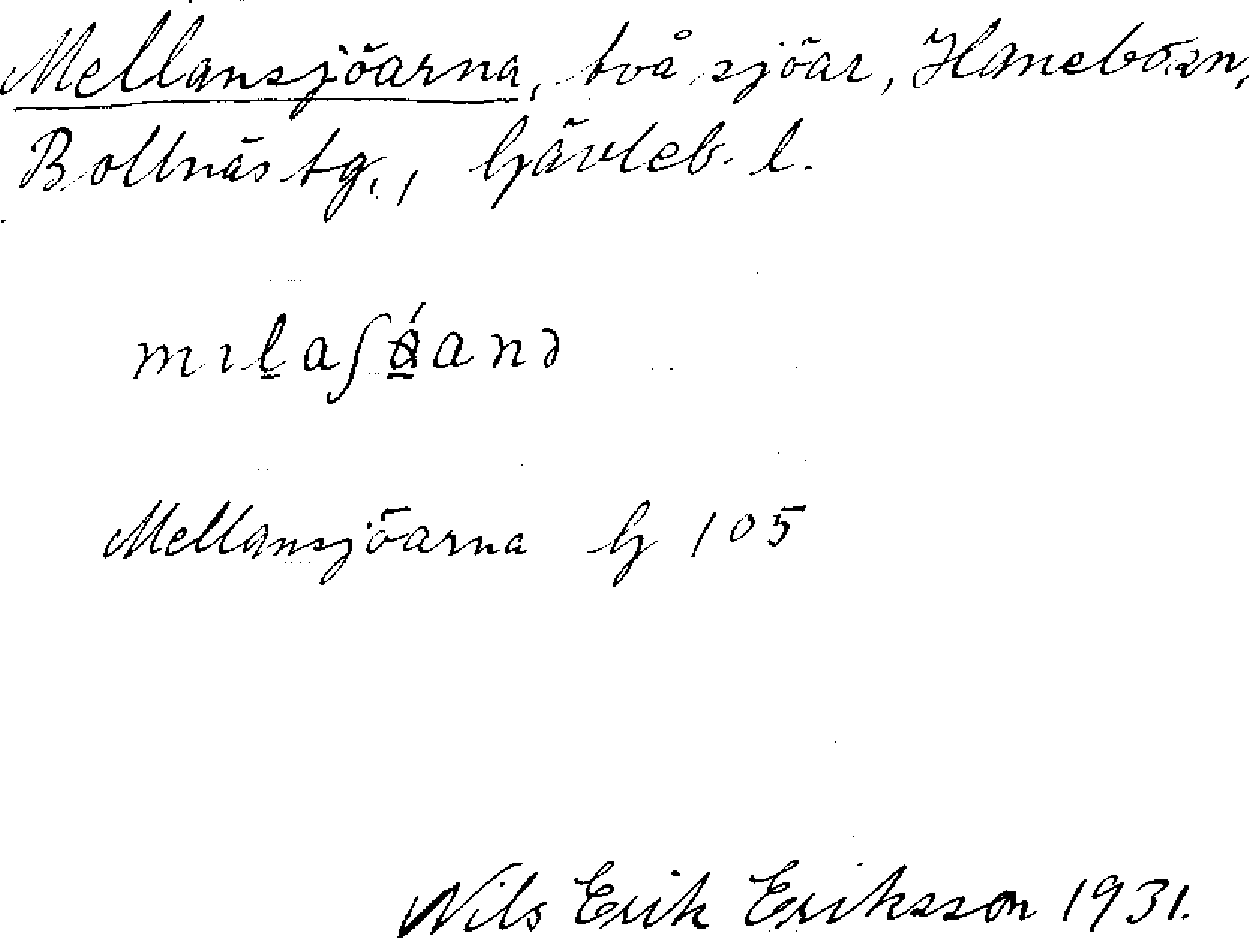 Mellansjöarna, två sjöar, Hanebo sn,
Bollnäs tg., Gävleb. l.
mılaʃǿanə
Mellansjöarna G 105
Nils Erik Eriksson 1931.